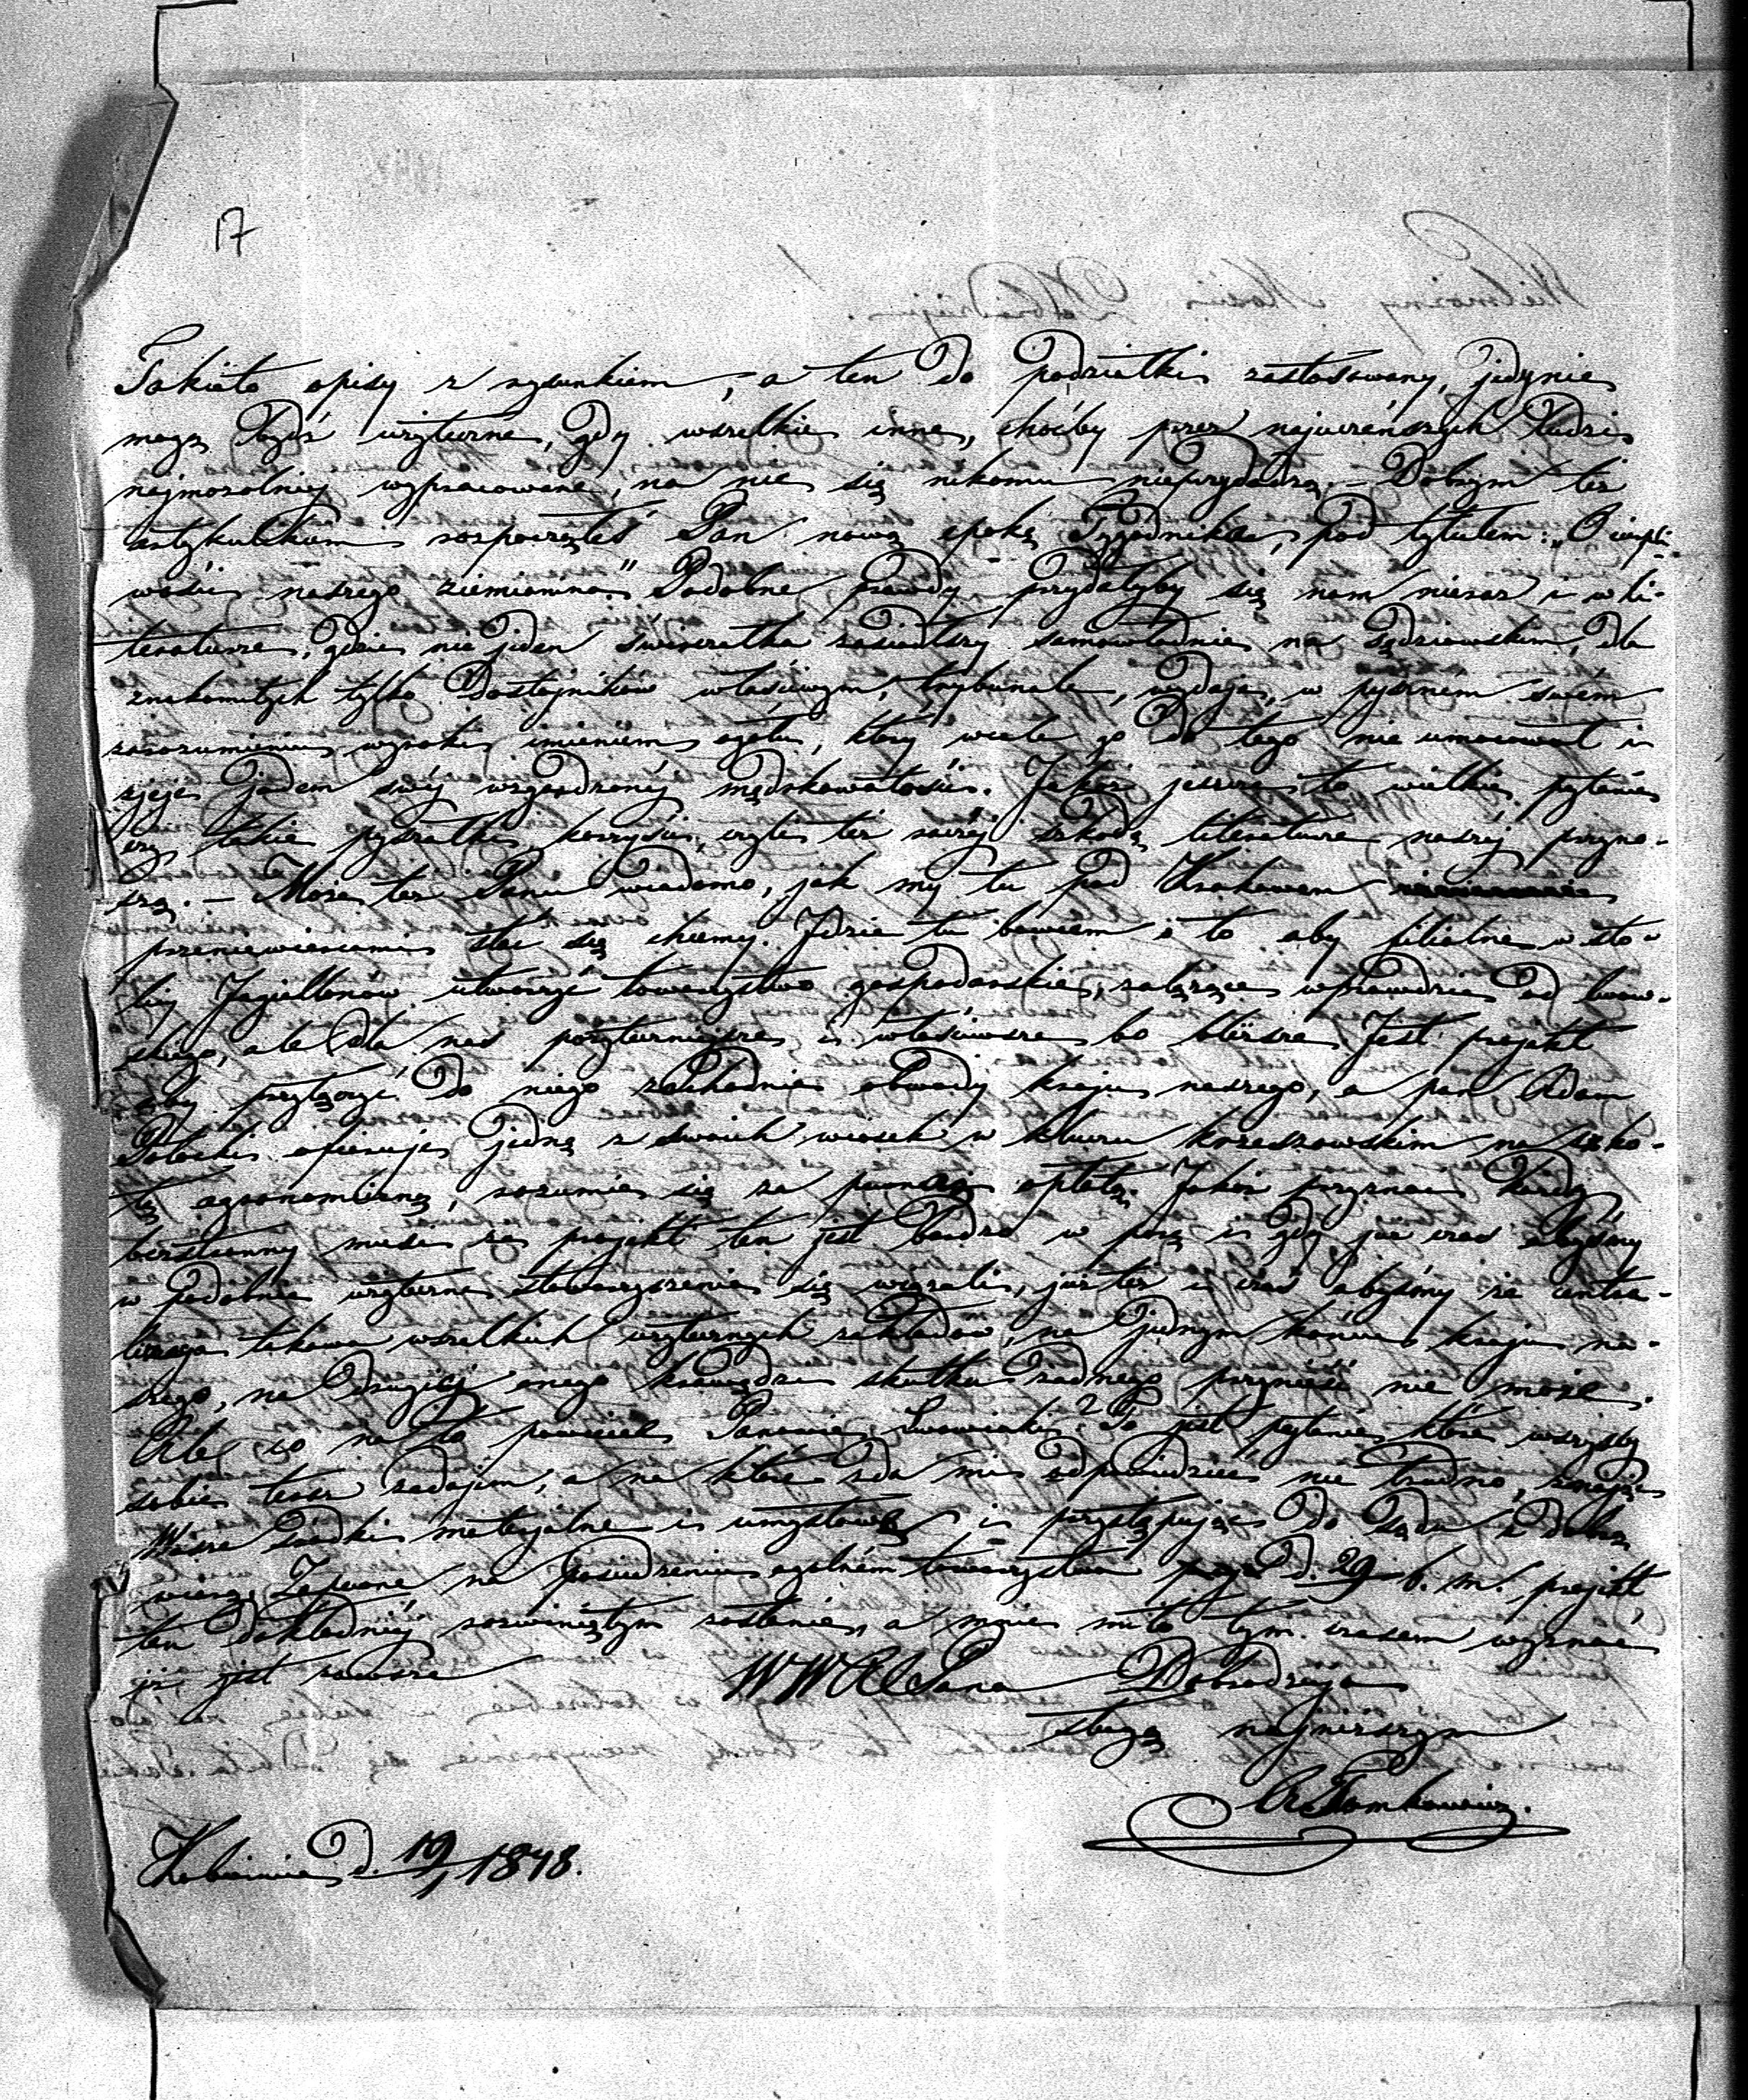 17
Takieto opisy z rysunkiem, a ten do podziałki zastósowany, jedynie
mogą bydź użyteczne, gdy wszelkie inne, choćby przez najuczeńszych ludzi
najmozolniéj wypracowane, na nic się nikomu nieprzydadzą. – Dobrym też
artykulikiem rozpocząłeś Pan nową epokę Tygodnika, pod tytułem: „O
wości naszego ziemianina." Podobne prawdy przydałyby się nam nieraz i w li-
teraturze, gdzie nie jeden zasiadłszy samowładnie na Sędziowskim, dla
znakomitych tylko Dostojników właściwym, trybunale, wydaje, w pysznem swem
zarozumieniu wyroki imieniem ogółu, który wcale go do tego nie umocował i
zieje jadem swéj wzgardzonéj mędrkowatości. Jakoż jeszcze to wielkie pytanie
czy takie pyszałki korzyści, czyli też raczéj szkodę literaturze naszéj przyno-
szą. – Może też Panu wiadomo, jak my tu pod Krakowem
przeniewierzemi stać się chcemy. Idzie tu bowiem o to aby filialne w sto-
licy Jagiellonów utworzyć towarzystwo gospodarskie, zależące wprawdzie od lwow-
skiego, ale dla nas pożyteczniejsze i właściwsze bo bliższe. Jest projekt
aby przyłączyć do niego zachodnie obwody kraju naszego, a pan Adam
Potocki ofiaruje jedną z swoich wiosek w kluczu krzeszowskim na szko-
łę agronomiczną, rozumie się za pewną opłatą. Jakoż przyznać każdy
bezstronny musi że projekt ten jest bardzo w porę i gdy już czas abyśmy
w podobne użyteczne stowarzyszenia się wiązali, już też i czas abyśmy że centra-
lizacya takowa wszelkich użytecznych zakładów, na jednym końcu kraju na-
szego, na drugiéj onego krawędzi skutku żadnego przynieść nie może.
Ale co na to powiecie Panowie Lwowiacy? To jest pytanie które wszyscy
sobie teraz zadajem, a na które zda mi się odpowiedzieć nie trudno, znając
Wasze środki materyalne i umysłowe, i przystępując do Sądu z dobrą
wiarą. Zapewne na posiedzeniu ogólném towarzystwa d. 29 b. m. projekt
ten dokładniéj rozwiniętym zostanie, a mnie miło tym czasem wyznać
iż jest zawsze WW Pana Dobrodzieja
sługą najniższym
Tomkowicz.
d. 19/1 1848.